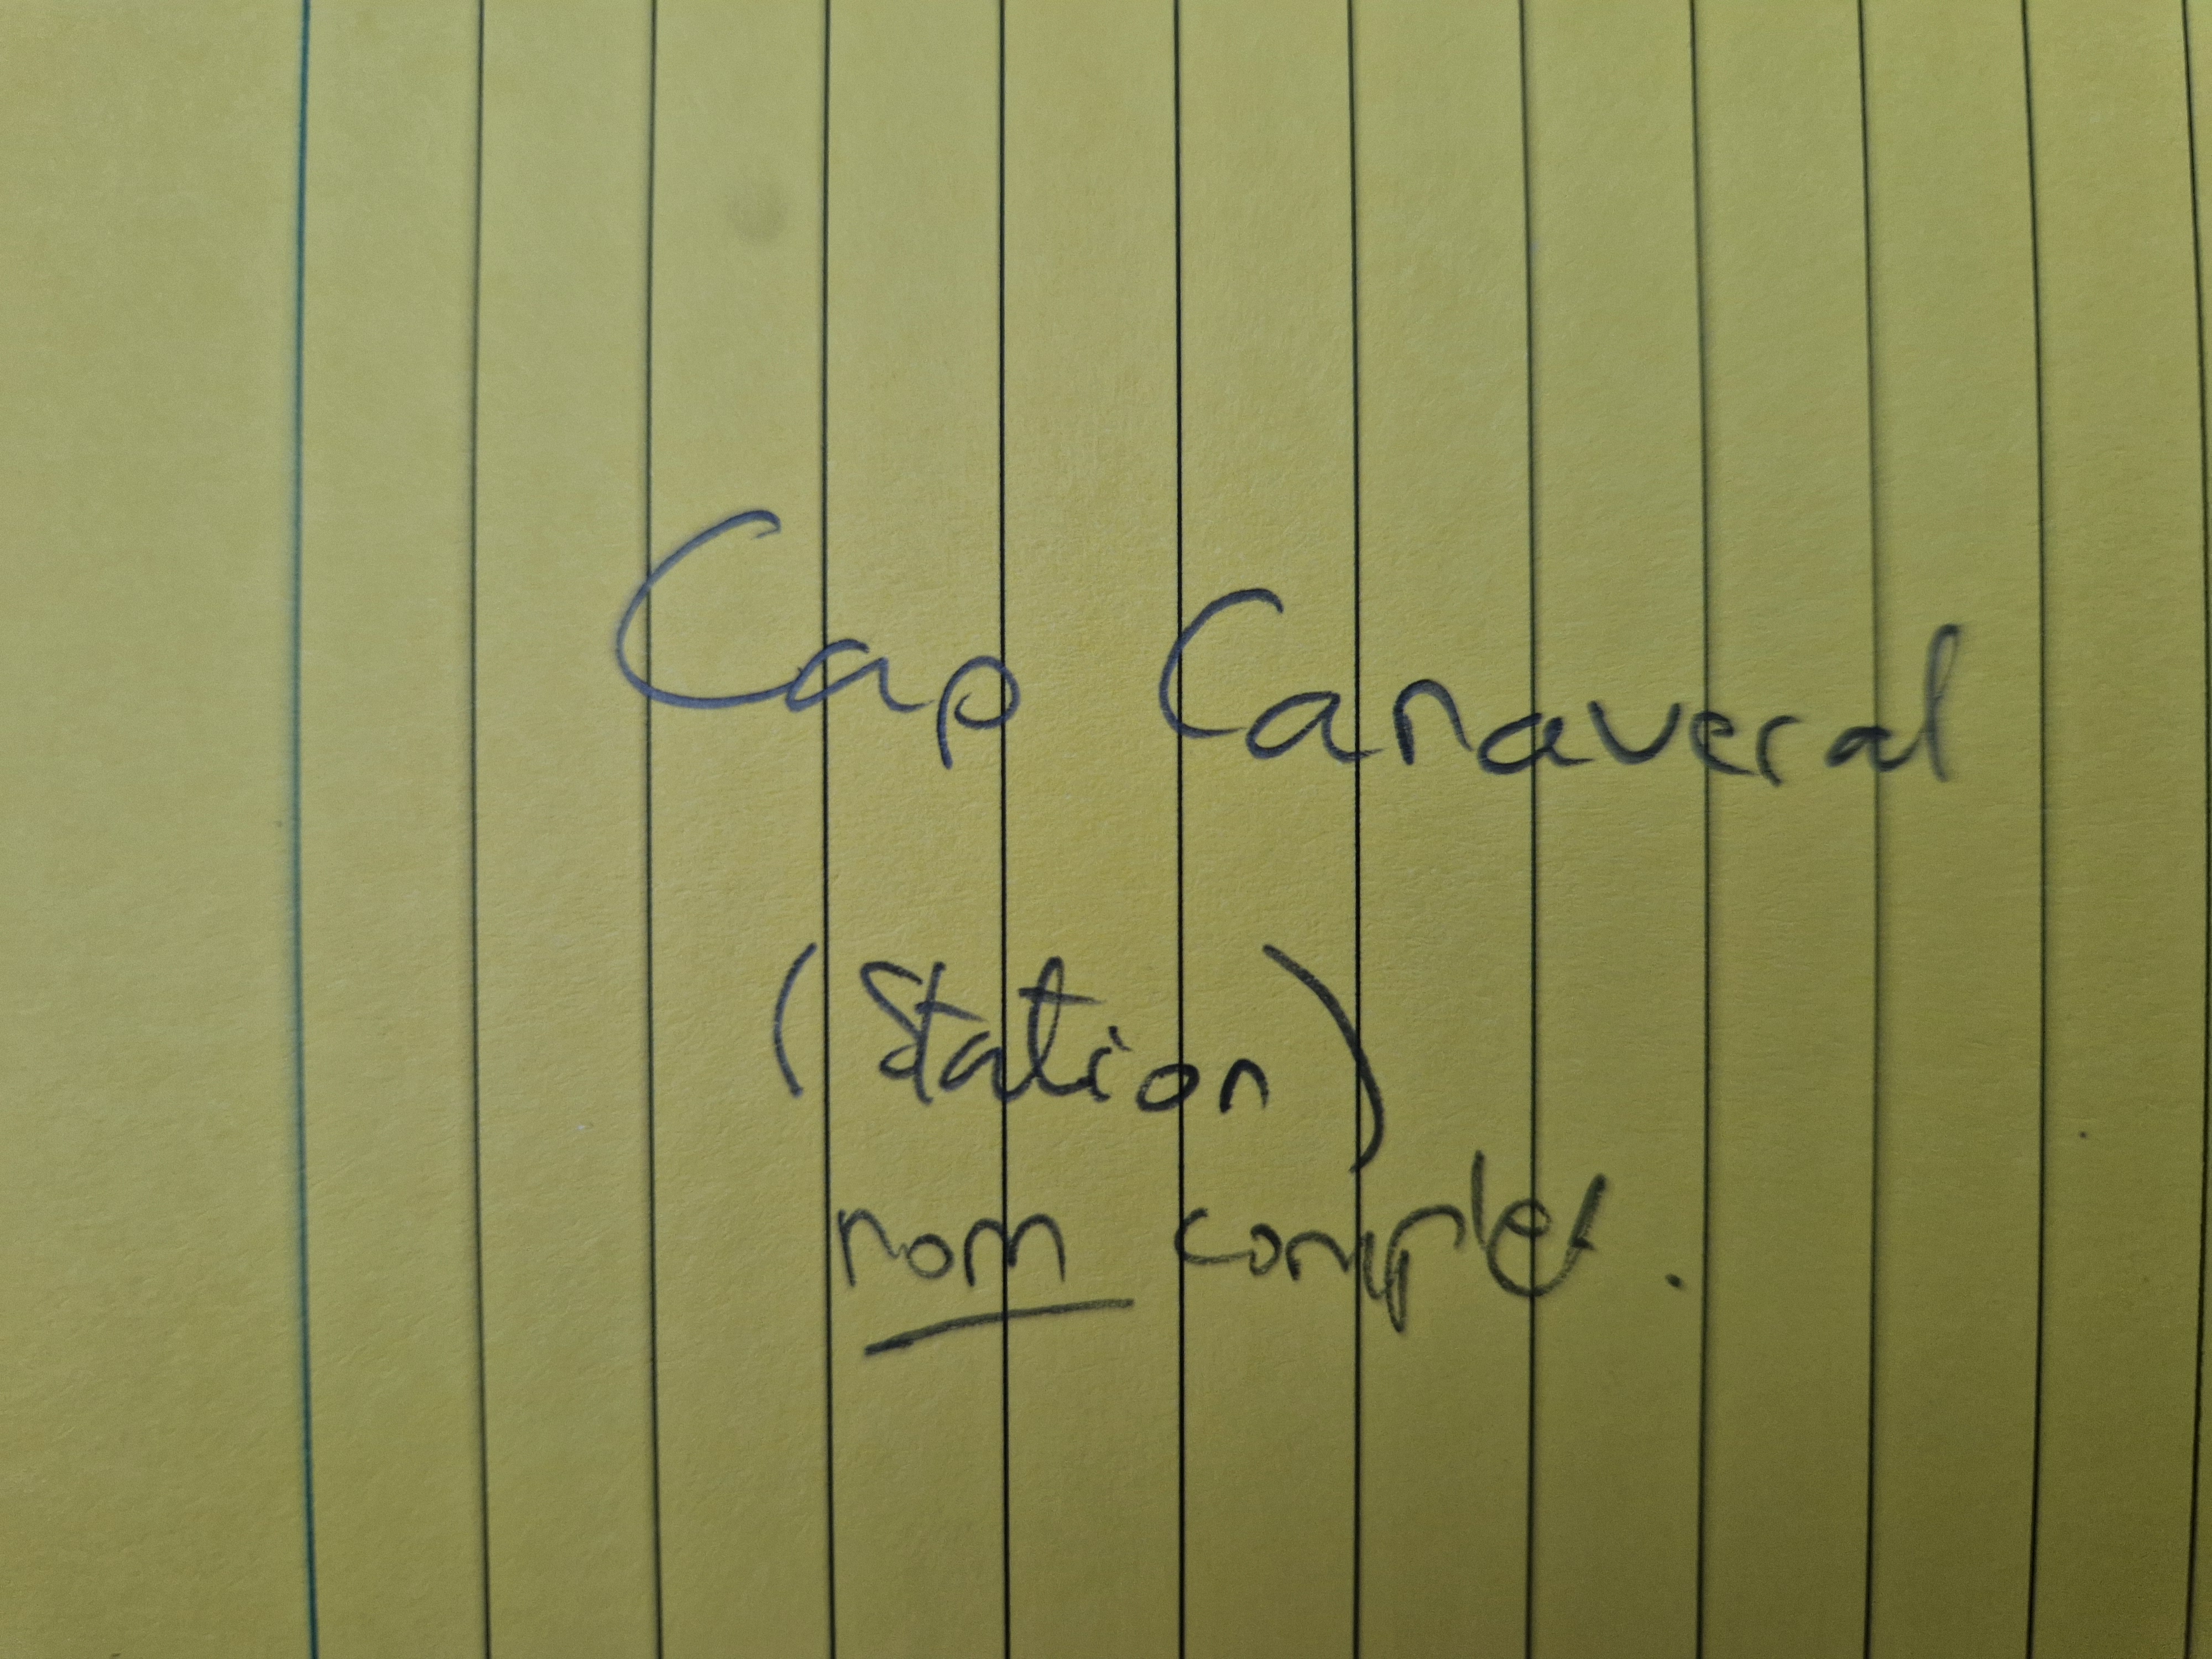 Cap Canaveral
(Station)
nom complet.